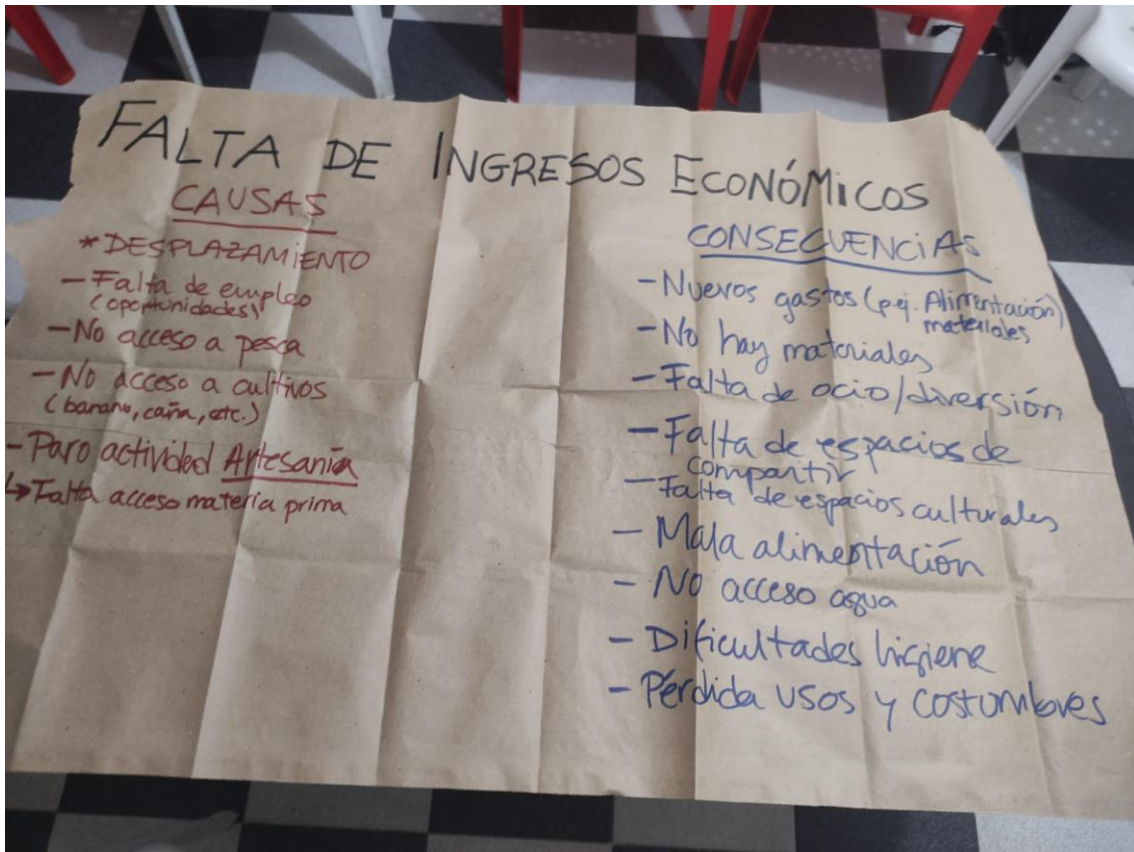 FALTA DE INGRESOS ECONÓMICOS
CAUSAS
* DESPLAZAMIENTO
- Falta de empleo
(oportunidades)
- No acceso a pesca
- No acceso a cultivos
(banano, caña, etc.)
- Paro actividad Artesanía
↳ Falta acceso materia prima
CONSECUENCIAS
- Nuevos gastos (p.ej. Alimentación)
materiales
- No hay materiales
- Falta de ocio/diversión
- Falta de espacios de
compartir
- Falta de espacios culturales
- Mala alimentación
- No acceso agua
- Dificultades higiene
- Pérdida usos y costumbres